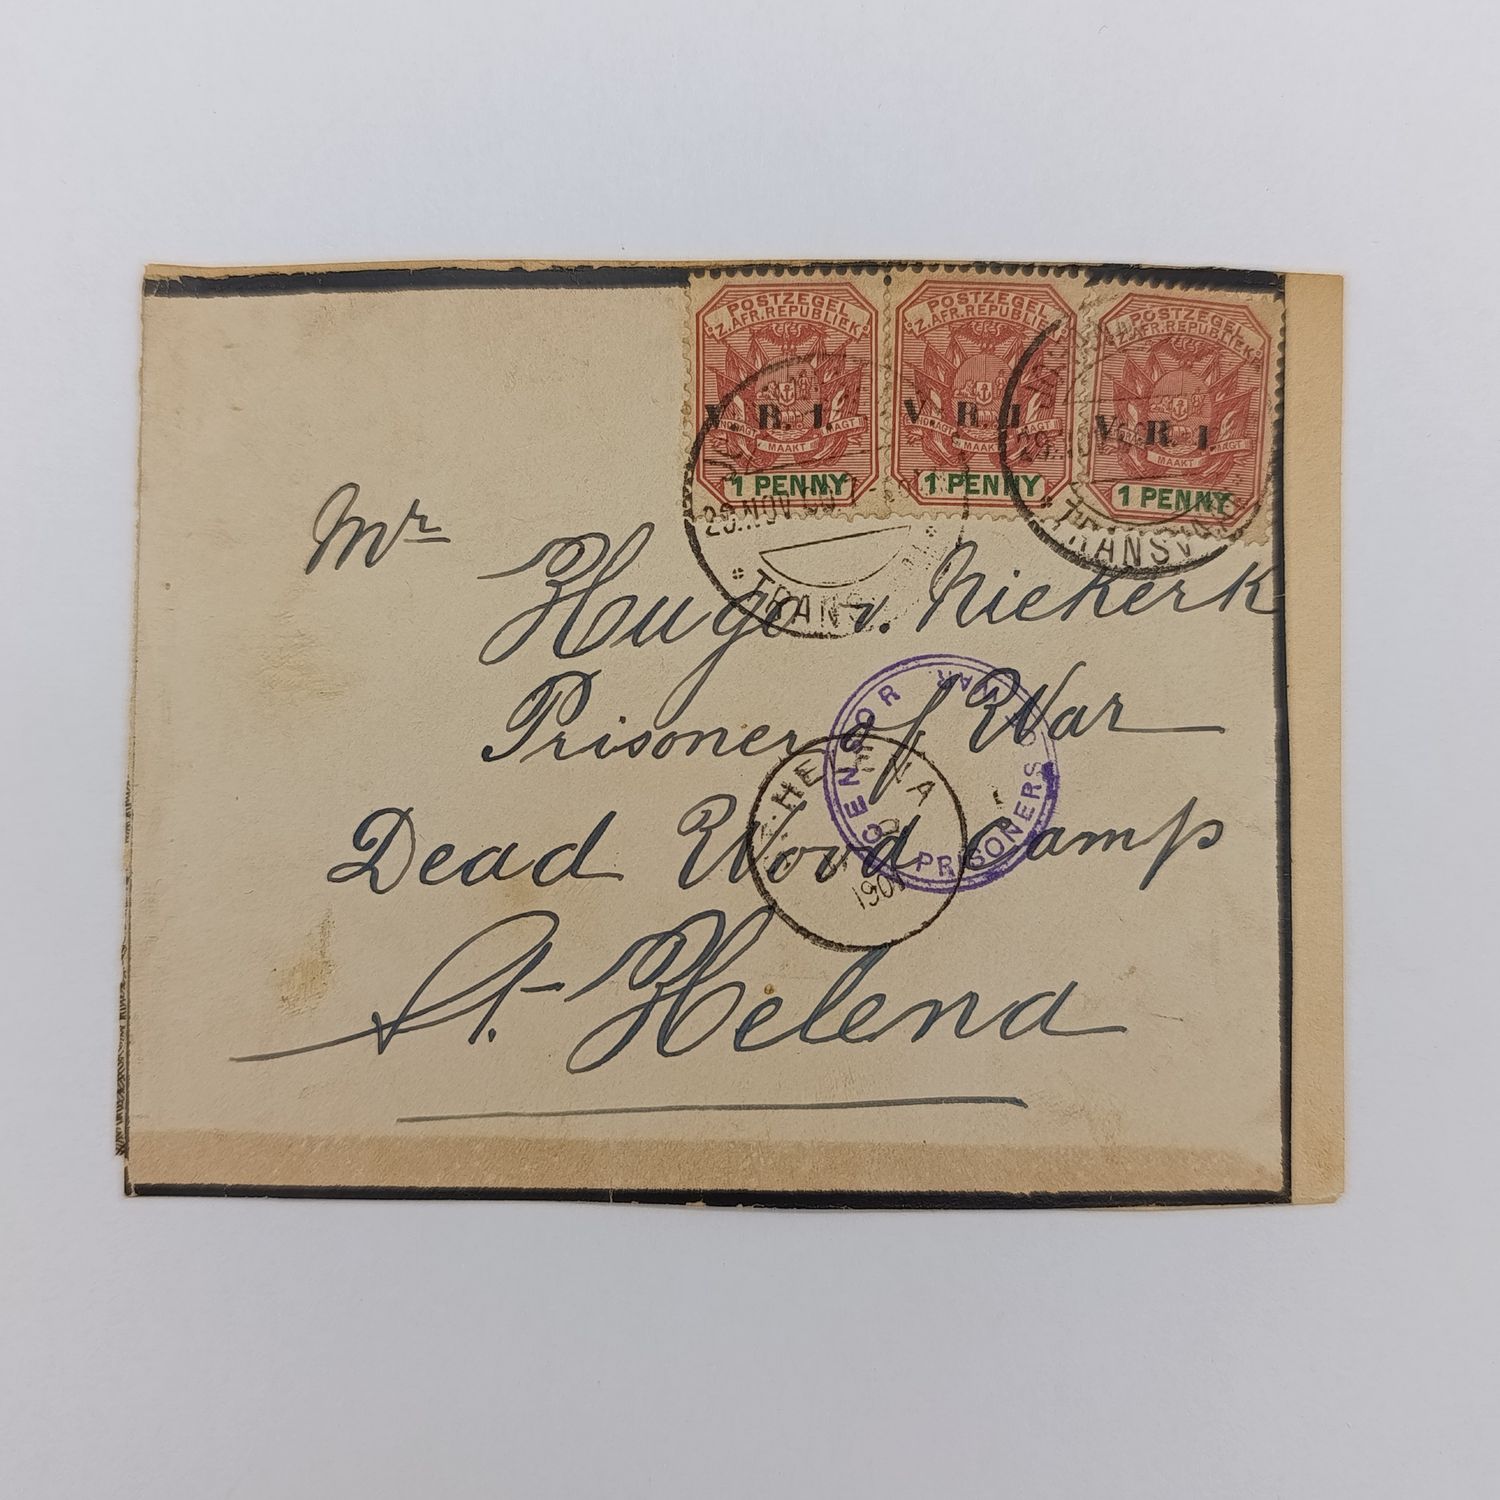 POSTZEGEL
Z.AFR.REPUBLIEK
V. R. I.
EENDRAGT MAAKT MAGT
1 PENNY
POSTZEGEL
Z.AFR.REPUBLIEK
V. R. I.
EENDRAGT MAAKT MAGT
1 PENNY
POSTZEGEL
Z.AFR.REPUBLIEK
V. R. I.
EENDRAGT MAAKT MAGT
1 PENNY
29.NOV 00
TRANSVAAL
29.NOV
TRANSVAAL
Mr
Hugo v. Niekerk
Prisoner of War
Dead Wood Camp
St. Helena
CENSOR
PRISONERS OF WAR.
ST. HELENA
1901